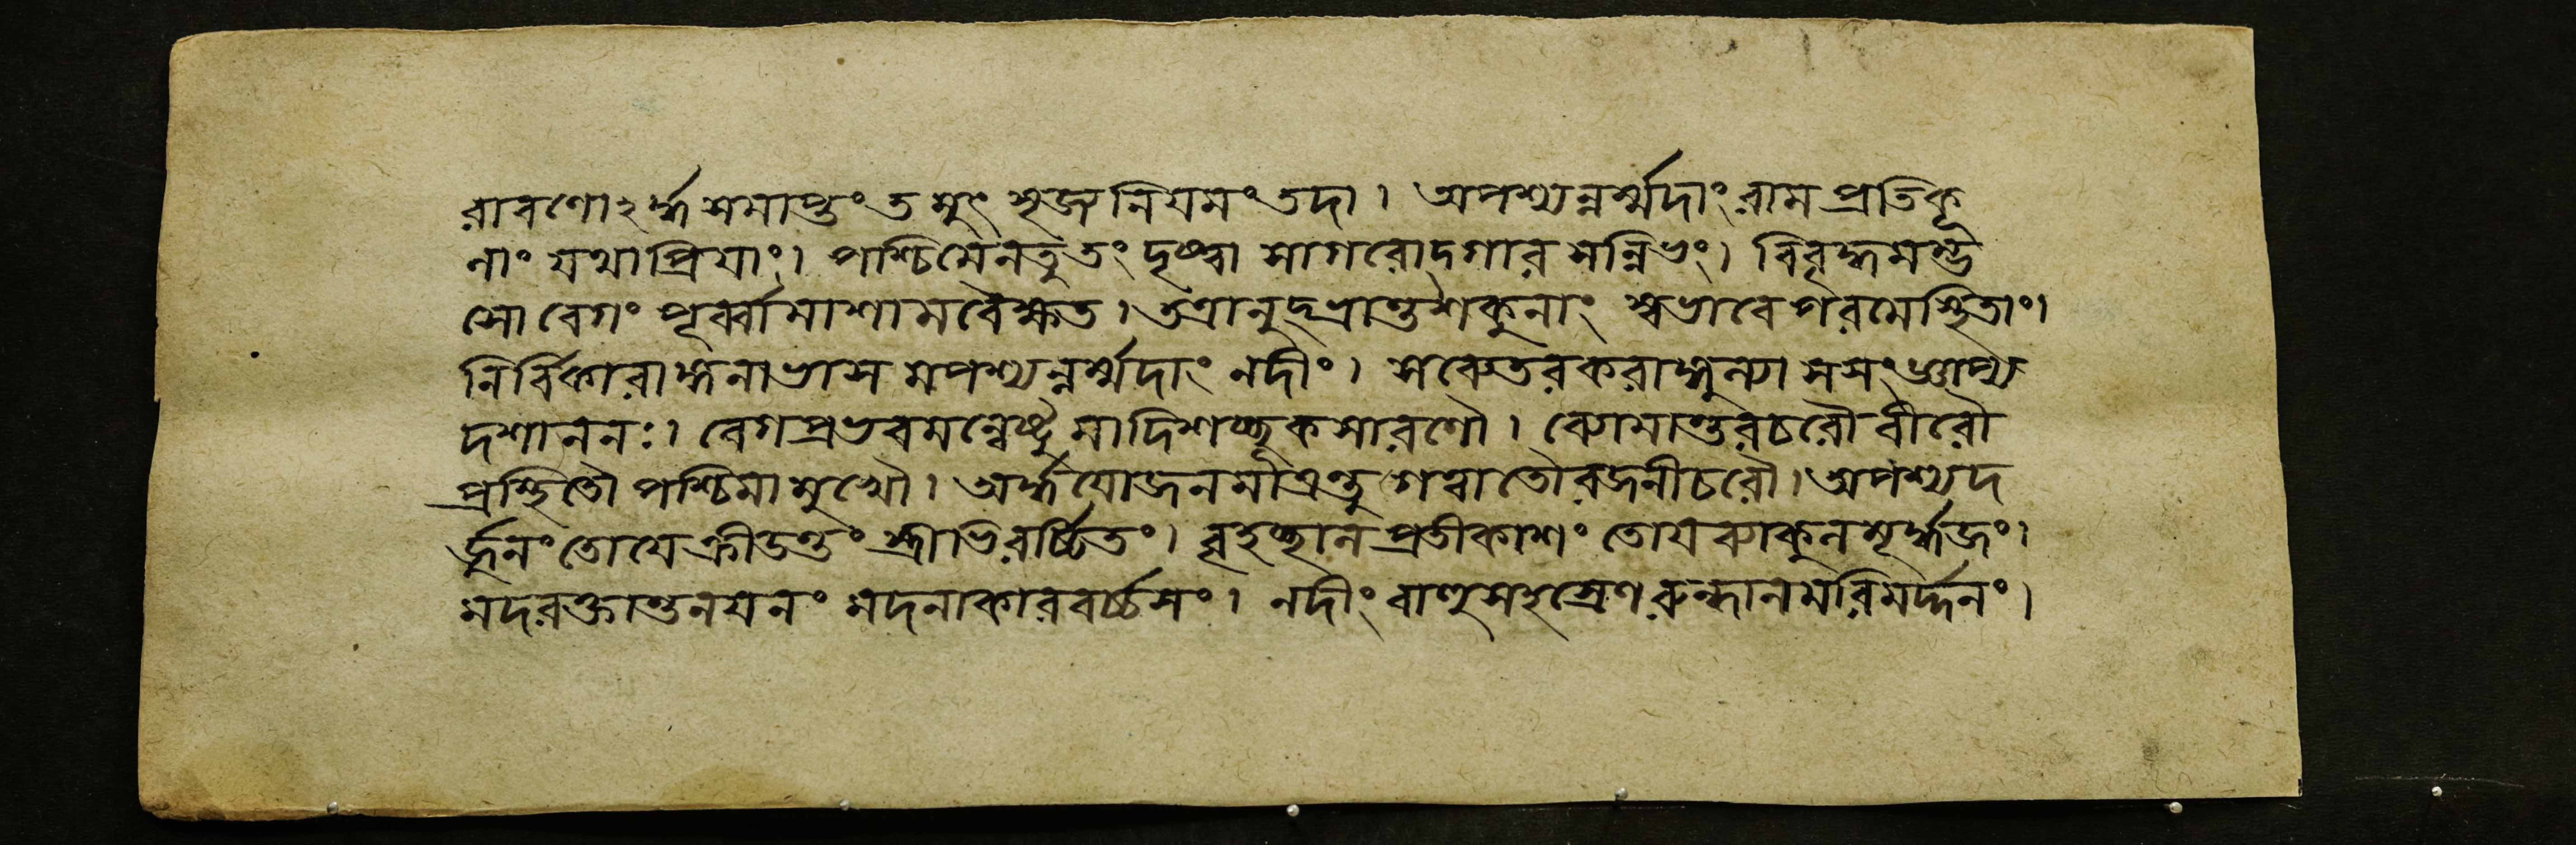 রাবণোঽর্দ্ধসমাপ্তং তমুৎসৃজ্য নিয়মং তদা। অপশ্যন্নর্ম্মদাং রাম প্রতিকূ
লাং যথা প্রিয়াং। পশ্চিমেন তু তং দৃষ্ট্বা সাগরোদ্গার সন্নিভং। বিবৃদ্ধমম্ভ
সো বেগং পূর্ব্বামাশামবৈক্ষত। তত্রানুদ্ভ্রান্তশকুনাং স্বভাবে পরমে স্থিতাং।
নির্বিকারাঙ্গনাভাসমপশ্যন্নর্ম্মদাং নদীং। সব্যেতরকরাঙ্গুল্যা সসংজ্ঞাপ্য
দশাননঃ। বেগপ্রভবমন্বেষ্টুমাদিশচ্ছুকসারণৌ। ব্যোমান্তরচরৌ বীরৌ
প্রস্থিতৌ পশ্চিমামুখৌ। অর্দ্ধযোজনমাত্রন্তু গত্বা তৌ রজনীচরৌ। অপশ্যদ
র্জুনং তোয়ে ক্রীডন্তং স্ত্রীভিরর্চ্চিতং। বৃহৎশাল প্রতীকাশং তোয়ব্যাকুলমূর্দ্ধজং।
মদরক্তান্তনয়নং মদনাকারবর্চ্চসং। নদীং বাহুসহস্রেণ রুন্ধানমরিমর্দ্দনং।